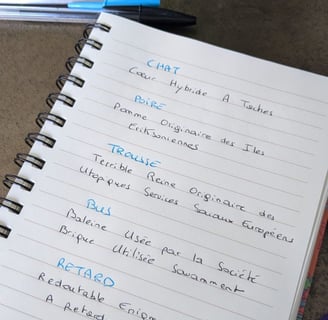 CHAT
Cœur Hybride A Taches
POIRE
Pomme Originaire des Iles
Eriksoniennes
TROUSSE
Terrible Reine Originaire des
Utopiques Services Sociaux Européens
BUS
Baleine Usée par la Société
Brique Utilisée Savamment
RETARD
Redoutable
A Retard